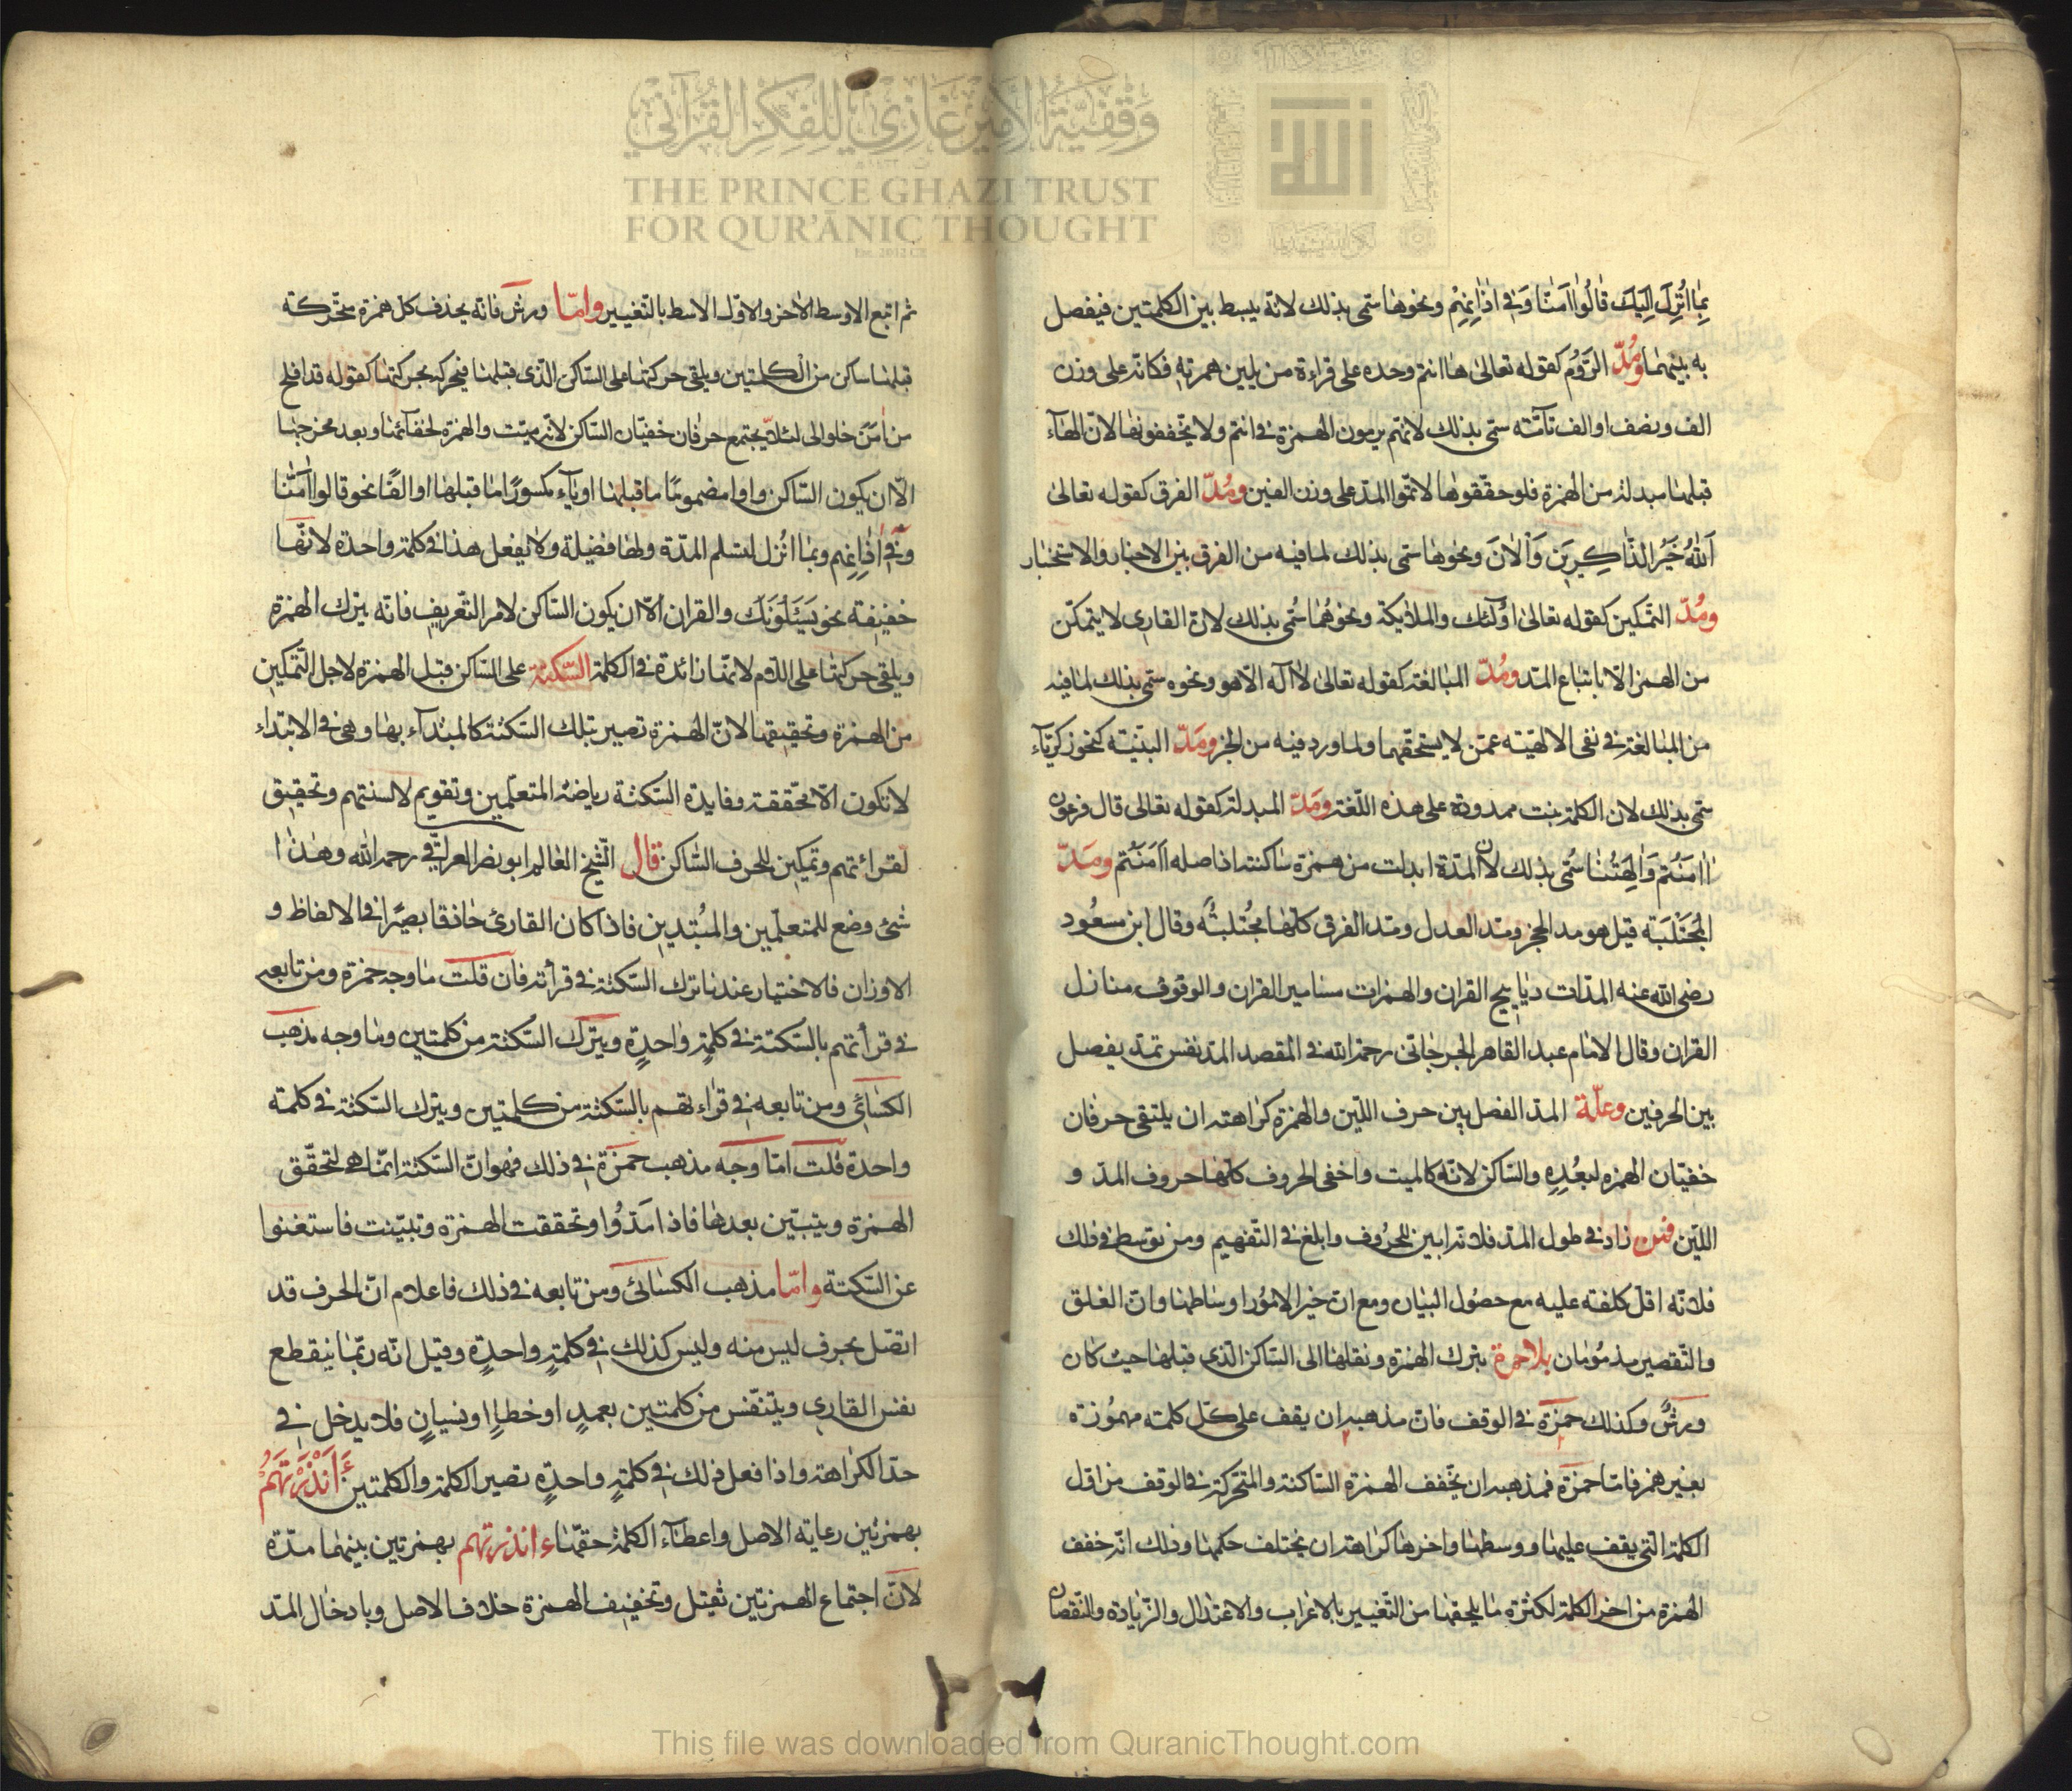 وقفية الأمير غازي للفكر القرآني
THE PRINCE GHAZI TRUST
FOR QUR'ĀNIC THOUGHT
بما انزل اليك قالوا امنا وفى اذانهم ونحوها سمى بذلك لانه يبسط بين الكلمتين فيفصل
به بينهما ومدّ الرّوم كقوله تعالى هاانتم وحده على قراءة من يلين همزته فكانه على وزن
الف ونصف او الف تامّة سمى بذلك لانهم يرمون الهمزة فى انتم ولا يخففونها لان الهاء
قبلها مبدلة من الهمزة فلو حققوها لاتموا المد على وزن الفين ومُدّ الفرق كقوله تعالى
آلله خير الذاكرين وآلان ونحوها سمى بذلك لما فيه من الفرق بين الاخبار والاستخبار
ومُدّ التمكين كقوله تعالى اولئك والملائكة ونحوهُما سُمى بذلك لان القارى لا يتمكن
من الهمز الّا باشباع المد ومُدّ المبالغة كقوله تعالى لا اله الّا هو ونحوه سمى بذلك لما فيه
من المبالغة فى نفى الالهيّته عمّن لا يستحقها ولما ورد فيه من الخبر ومَدّ البنيّة كنحو زكريّاء
سمى بذلك لان الكلمة بنت ممدودة على هذه اللّغة ومَدّ المبدلة كقوله تعالى قال فرعون
ءاامنتم وآلهتنا سُمى بذلك لان المدّة ابدلت من همزة ساكنة اذ اصله اامنتم ومَدّ
المجتلبة قيل هو مد الحجز ومد العدل ومد الفرق كلها مجتلبة وقال ابن مسعود
رضى الله عنه المدّات ديابيج القران والهمزات مسامير القران والوقوف منازل
القران وقال الامام عبد القاهر الجرجانى رحمة الله فى المقصد المد نفس تمدّ يفصل
بين الحرفين وعلّة المدّ الفصل بين حرف اللّين والهمزة كراهته ان يلتقى حرفان
خفيّان الهمزه لبعُدِهِ والسّاكن لانّه كالميت واخفى الحروف كلها حروف المدّ و
اللّين فمن زاد فى طول المدّ فلانه ابين للحرُوف وابلغ فى التّفهيم ومن توسط فى ذلك
فلانّه اقل كلفته عليه مع حصُول البيان ومع ان خير الامُور اوساطها وانّ الغلق
والتّقصير مذمُومان بلاحمزة بترك الهمزة ونقلها الى السّاكن الذى قبلها حيث كان
ورشٌ وكذلك حمزة فى الوقف فان مذهبه ان يقف على كل كلمته مهمُوزة
بغير همز فامّا حمزة فمذهبه ان يخفف الهمزة السّاكنة والمتحركة فى الوقف من اول
الكلمة التى يقف عليها ووسطها واخرها كراهته ان يختلف حكمها وذلك انّه خفف
الهمزة من اخر الكلمة لكثرة ما يلحقها من التّغيير بالاعراب والاعتدال والزّيادة والنّقصان
ثم اتبع الاوسط الاخر والاوّل الاسط بالتّغيير وامّا ورش فانه يحذف كل همزة متحرّكة
قبلها ساكن من الكلمتين ويلقى حركتها على السّاكن الّذى قبلها فيحركه بحركتها كقوله قد افلح
من امن خلوا الى لئلّا يجتمع حرفان خفيّان السّاكن لانّه ميّت والهمزة لخفائها وبعد مخرجها
الّا ان يكون السّاكن واوا مضموما ما قبلها او ياء مكسورًا ما قبلها او الفًا نحو قالوا آمنّا
وفى اذانهم وبما انزل لتسلم المدّة ولها فضيلة ولا يفعل هذا فى كلمة واحدة لانّها
خفيفة نحو يسئلونك والقران الّا ان يكون السّاكن لام التّعريف فانه يترك الهمزة
ويلقى حركتها على اللّام لانها زائدة فى الكلمة السّكتة على السّاكن قبل الهمزة لاجل التّمكين
من الهمزة وتحقيقها لانّ الهمزة تصير بتلك السّكتة كالمبتداء بها وهى فى الابتداء
لا تكون الّا محقّقة وفايدة السّكتة رياضة المتعلّمين وتقويم لالسنتهم وتحقيق
لقرائتهم وتمكين للحرف السّاكن قال الشّيخ العالم ابو نصر العراقى رحمه الله وهذا
شئ وضع للمتعلّمين والمبُتدين فاذا كان القارئ حاذقا بصيرًا فى الالفاظ و
الاوزان فالاختيار عندنا ترك السّكتة فى قرأته فان قلت ما وجه حمزة ومن تابعه
فى قرأتهم بالسّكتة فى كلمةٍ واحدةٍ ويترك السّكتة من كلمتين وما وجه مذهب
الكسائى ومن تابعه فى قراءتهم بالسّكتة من كلمتين ويترك السّكتة فى كلمة
واحدة قلت امّا وجه مذهب حمزة فى ذلك فهو انّ السّكتة انّما هى لتحقّق
الهمزة ويتبيّن بعدها فاذا مَدّوُا وتحققت الهمزة وتبيّنت فاستغنوا
عن السّكتة وامّا مذهب الكسائى ومن تابعه فى ذلك فاعلام انّ الحرف قد
اتصل بحرف ليس منه وليس كذلك فى كلمةٍ واحدةٍ وقيل انّه ربّما ينقطع
نفس القارى ويتنفّس من كلمتين بعمدٍ او خطاءٍ او نسيانٍ فلا يدخل فى
حدّ الكراهة واذا فعل ذلك فى كلمةٍ واحدةٍ تصير الكلمة والكلمتين ءَاَنْذَرْتَهُمْ
بهمزتين رعاية الاصل واعطاء الكلمة حقّها ءاانذرتهم بهمزتين بينهما مدّة
لانّ اجتماع الهمزتين ثقيل وتخفيف الهمزة خلاف الاصل وبادخال المدّ
This file was downloaded from QuranicThought.com